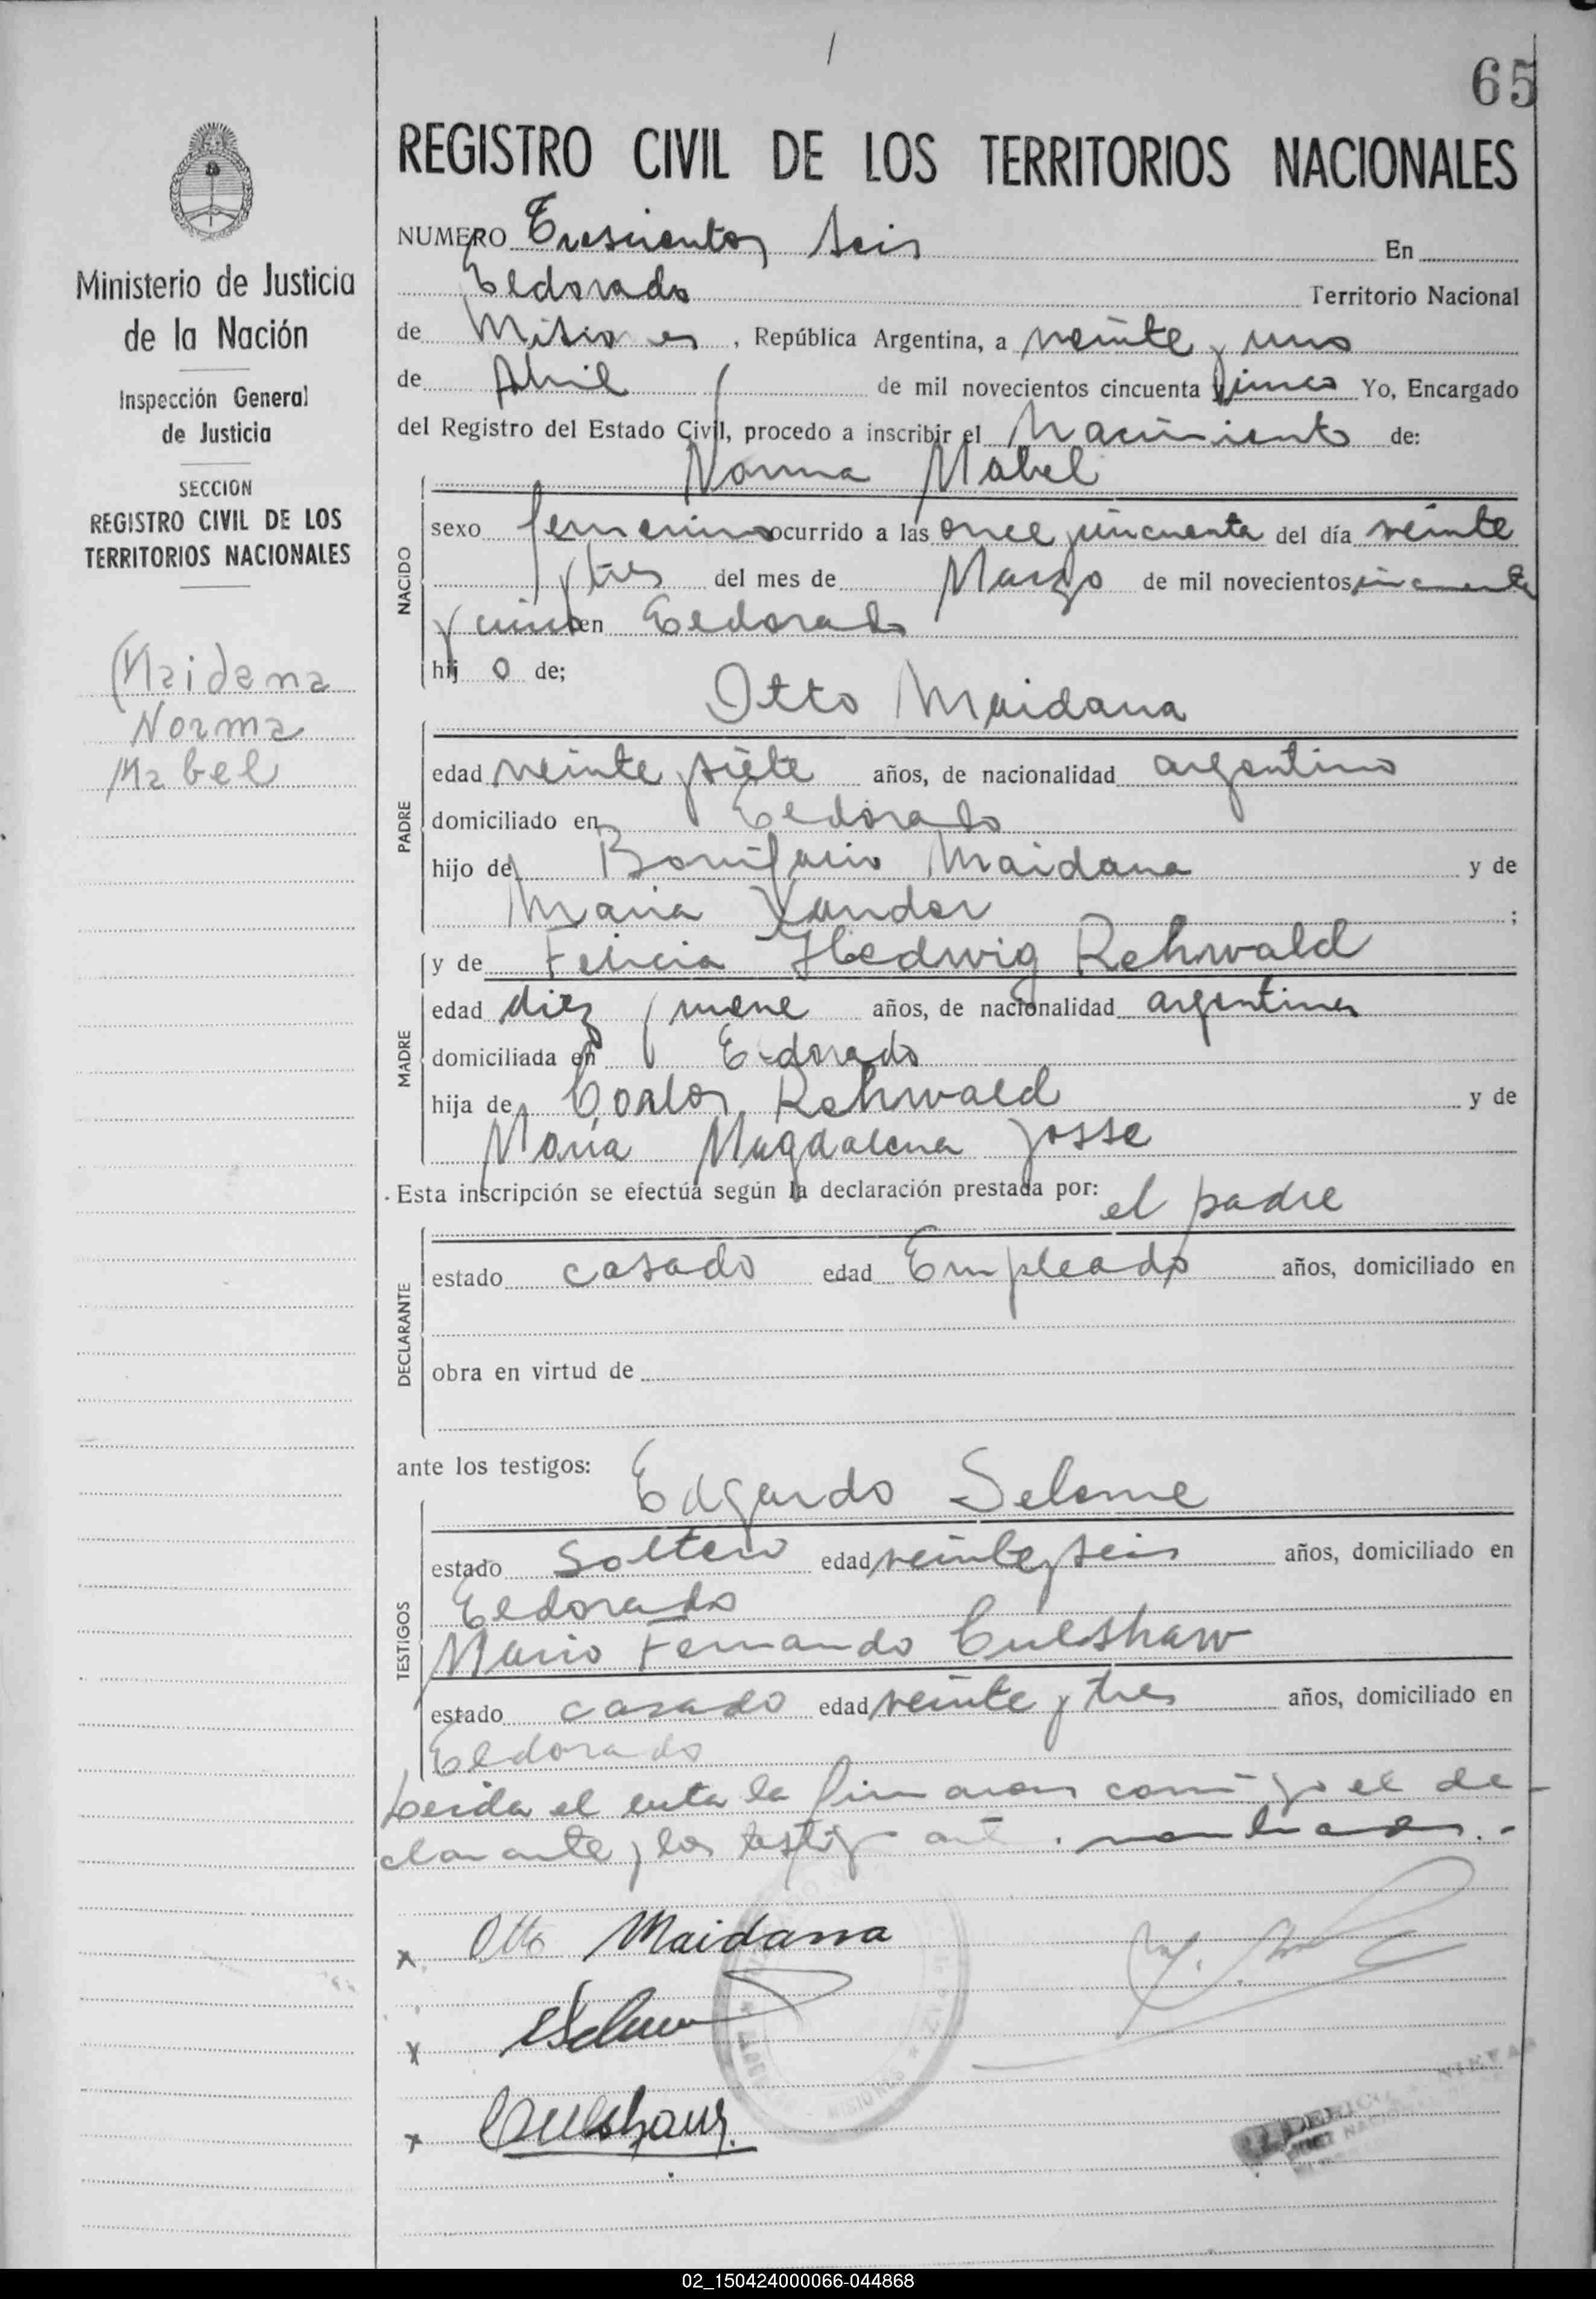 65
REGISTRO CIVIL DE LOS TERRITORIOS NACIONALES
Ministerio de Justicia
de la Nación
Inspección General
de Justicia
SECCION
REGISTRO CIVIL DE LOS
TERRITORIOS NACIONALES
Maidana
Norma
Mabel
NUMERO Trescientos seis En
Eldorado Territorio Nacional
de Misiones, República Argentina, a veinte y uno
de Abril de mil novecientos cincuenta y cinco Yo, Encargado
del Registro del Estado Civil, procedo a inscribir el Nacimiento de:
Norma Mabel
NACIDO
sexo femenino ocurrido a las once y cincuenta del día veinte
y tres del mes de Marzo de mil novecientos cincuenta
y cinco en Eldorado
hij o de;
Otto Maidana
PADRE
edad veinte y siete años, de nacionalidad argentino
domiciliado en Eldorado
hijo de Bonifacio Maidana y de
Maria ;
y de Felicia Hedwig Rehwald
MADRE
edad diez y nueve años, de nacionalidad argentina
domiciliada en Eldorado
hija de Carlos Rehwald y de
María Magdalena Josse
Esta inscripción se efectúa según la declaración prestada por: el padre
DECLARANTE
estado casado edad Empleado años, domiciliado en
obra en virtud de
ante los testigos: Edgardo Seleme
TESTIGOS
estado Soltero edad veinte y seis años, domiciliado en
Eldorado
Mario Fernando Culshaw
estado casado edad veinte y tres años, domiciliado en
Eldorado
Leida el acta la firmaron conmigo el de-
clarante y los testigos nombrados.-
x Otto Maidana
x
x Culshaw
MISIONES
02_150424000066-044868